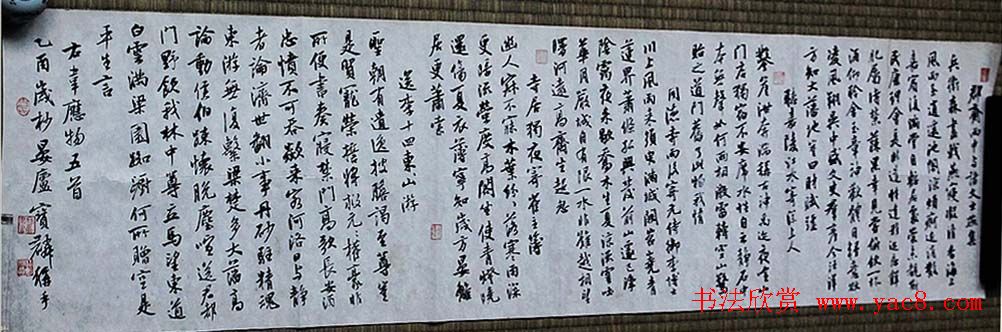 郡齋雨中與諸文士燕集
兵衛森畫戟燕寢凝清香海上
風雨至逍遙池閣涼煩痾近消散
嘉賓復滿堂自慚居處崇未睹斯
民康理會是非遣性達形跡忘鮮
肥屬時禁蔬果幸見嘗俯飲一杯
酒仰聆金玉章神歡體自輕意欲
凌風翔吳中盛文史群彥今汪洋
方知大藩地豈曰財賦彊
聽嘉陵江水寄深上人
鑿崖泄奔湍稱古神禹跡夜喧山
門店獨宿不安席水性自云靜石中
本無聲如何兩相激雷轉空山驚
貽之道門舊了此物我情
同德寺雨後寄元侍御李博士
川上風雨來須臾滿城闕岧嶢青
蓮界蕭條孤興發前山遽已淨
陰靄夜來歇喬木生夏涼流雲吐
華月嚴城自有限一水非難越相望
曙河遠高齋坐超忽
寺居獨夜寄崔主簿
幽人寂不寐木葉紛紛落寒雨深
更暗流螢度高閣坐使青燈曉
還傷夏衣薄寧知歲方晏離
居更蕭索
送李十四東山遊
聖朝有遺逸披膽謁至尊豈
是貿寵榮誓將救元元權豪非
所便書奏寢禁門高歌長安酒
忠憤不可吞欻來客河洛日與靜
者論濟世翻小事丹砂駐精魂
東遊無復繫梁楚多大藩高
論動侯伯疏懷脫塵喧送君都
門野飲我林中尊立馬望東道
白雲滿梁園踟躕何所贈空是
平生言
右韋應物五首
乙酉歲杪晏廬賓麟
书法欣赏 www.yac8.com